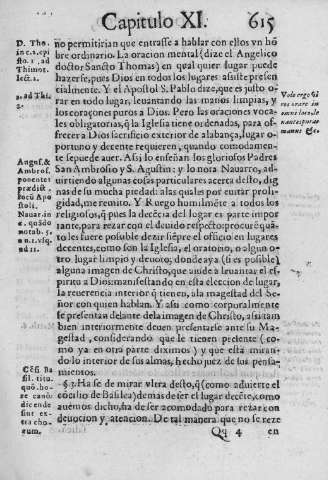 Capitulo XI. 615
D. Tho.
in c. 2. epi
sto. 1. ad
Thimot.
lect. 1.
2. ad Thi
2.
August. &
Ambros.
ponentes
prædict.
locũ Apo
stoli.
Nauar. in
c. quãdo
notab. 5.
n. 1. vsq.
ad 11.
Cõfi. Ba
sil. titu.
quo. ho-
re canõ:
dicende
sint ext-
tra cho-
rum.
no permitirian que entrasse a hablar con ellos vn hõ
bre ordinario. La oracion mental (dize el Angelico
doctor Sancto Thomas) en qual quier lugar puede
hazerse, pues Dios en todos los lugares assiste presen
cialmente. Y el Apostol S. Pablo dize, que es justo o-
rar en todo lugar, levantando las manos limpias, y
los coraçones puros a Dios. Pero las oraciones voca-
les obligatorias, q̃ la Iglesia tiene ordenadas, para of-
frecer a Dios sacrificio exterior de alabança, lugar o-
portuno y decente requieren, quando comodamen-
te se puede auer. Assi lo enseñan los gloriosos Padres
San Ambrosio y S. Agustin: y lo nota Nauarro, ad-
uirtiendo algunas cosas particulares acerca desto, dig
nas de su mucha piedad: a las quales por euitar proli-
gidad, me remito. Y Ruego humilmẽte a todos los
religiosos, q̃ pues la decẽcia del lugar es parte impor
tante, para rezar con el deuido respecto: procurẽ quã-
to les fuere possible dezir siẽpre el officio en lugares
decentes, como son la Iglesia, el oratorio, o algun o-
tro lugar limpio y deuoto, donde aya (si es possible)
alguna imagen de Christo, que aiude a leuantar el es-
piritu a Dios: manifestando en la eleccion deste lugar,
la reuerencia interior q̃ tienen, a la magestad del Se-
ñor con quien hablan. Y assi como corporalmente
se presentan delante de la imagen de Christo, assi tam
bien interiormente deuen presentarse ante su Ma-
gestad, considerando que le tienen presente (co-
mo ya en otra parte diximos) y que està miran-
do lo interior de sus almas, hecho juez de los pensa-
mientos.
§ 7. Ha se de mirar vltra desto, q̃ (como aduierte el
cõcilio de Basilea) demas de ser el lugar decẽte, como
auemos dicho, ha de ser acomodado para rezar con
deuocion y atencion. De tal manera que no se reze
Qq 4 en